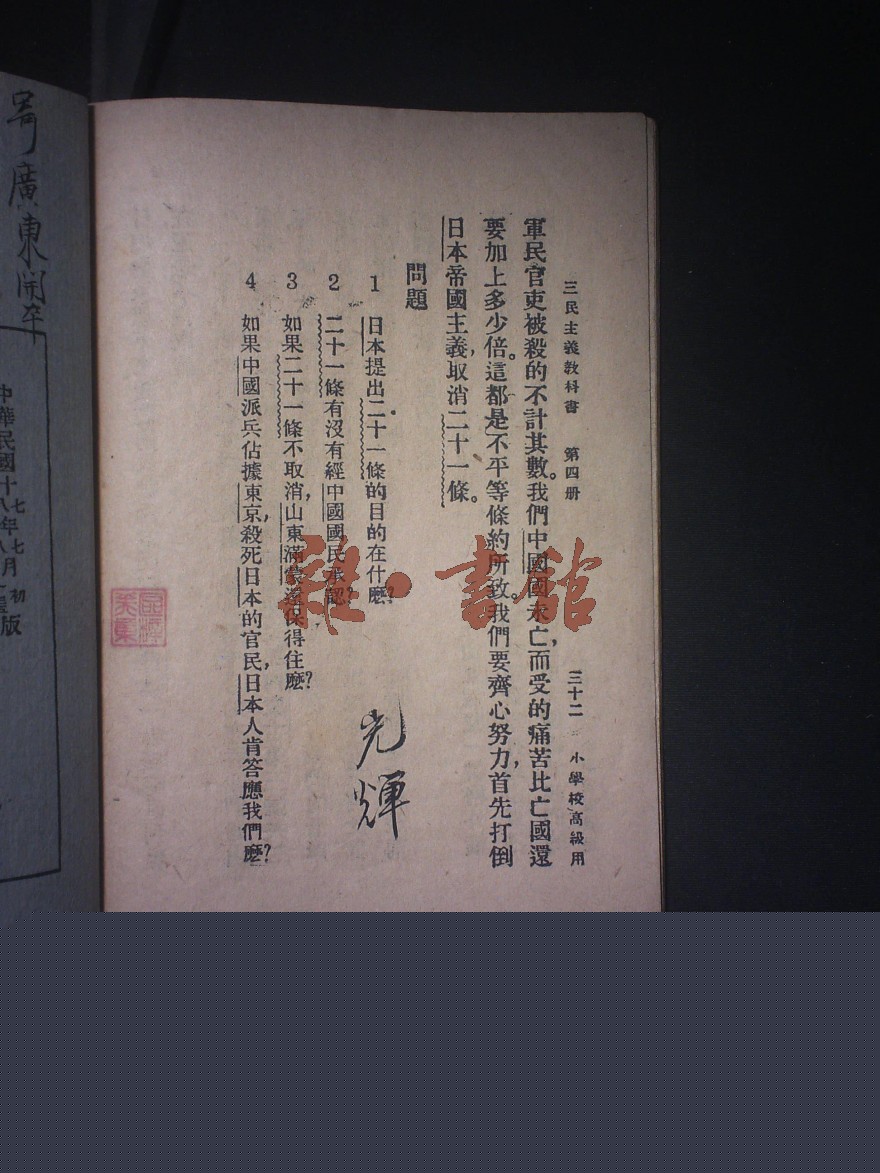 三民主義教科書 第四册 三十二 小學校高級用
軍民官吏被殺的不計其數。我們中國國未亡，而受的痛苦比亡國還
要加上多少倍。這都是不平等條約所致。我們要齊心努力，首先打倒
日本帝國主義，取消二十一條。
問題
1 日本提出二十一條的目的在什麽？
2 二十一條有沒有經中國國民承認？
3 如果二十一條不取消，山東滿蒙還保得住麽？
4 如果中國派兵佔據東京，殺死日本的官民，日本人肯答應我們麽？
光輝
雜·書館
廣東開
中華民國十
七年七月初版